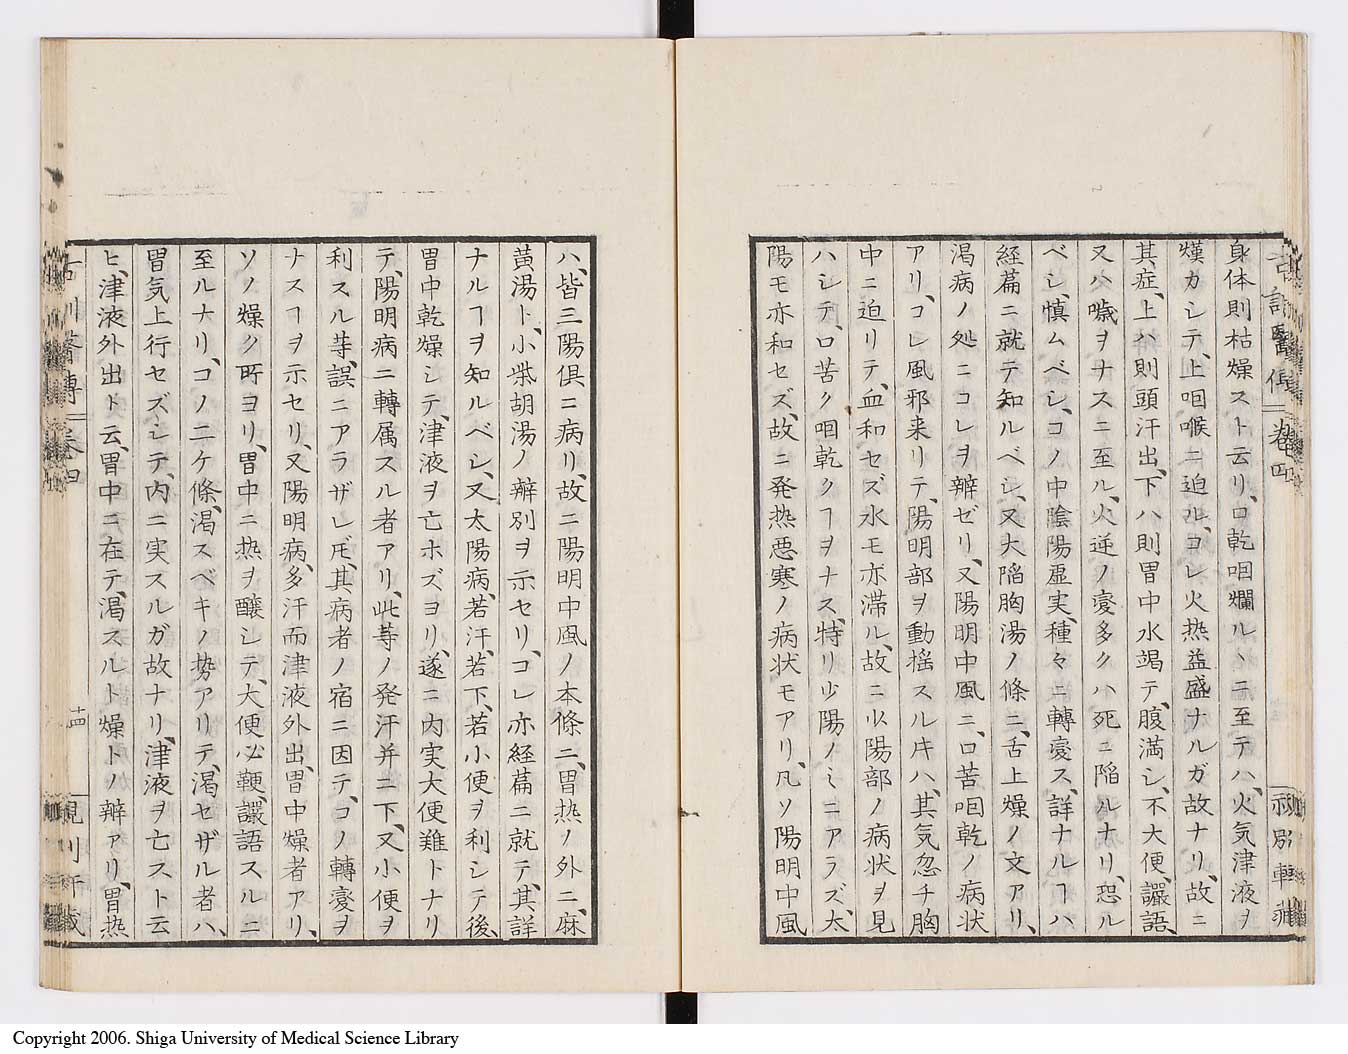 身体則枯燥スト云リ、口乾咽爛ルヽニ至テハ、火気津液ヲ
熯カシテ、上咽喉ニ迫ル、コレ火热益盛ナルガ故ナリ、故ニ
其症、上ハ則頭汗出、下ハ則胃中水竭テ、腹満シ、不大便、讝語、
又ハ噦ヲナスニ至ル、火逆ノ変多クハ死ニ陥ルナリ、恐ル
ベシ、慎ムベシ、コノ中陰陽虚実、種々ニ轉変ス、詳ナルヿハ
経篇ニ就テ知ルベシ、又大陥胸湯ノ條ニ、舌上燥ノ文アリ、
渇病ノ処ニコレヲ辨ゼリ、又陽明中風ニ、口苦咽乾ノ病状
アリ、コレ風邪来リテ、陽明部ヲ動揺スル𪜈ハ、其気忽チ胸
中ニ迫リテ、血和セズ水モ亦滞ル、故ニ少陽部ノ病状ヲ見
ハシテ、口苦ク咽乾クヿヲナス、特リ少陽ノミニアラズ、太
陽モ亦和セズ、故ニ発热悪寒ノ病状モアリ、凡ソ陽明中風
古訓醫傳 巻四
ハ、皆三陽倶ニ病リ、故ニ陽明中風ノ本條ニ、胃热ノ外ニ、麻
黄湯ト、小柴胡湯ノ辨別ヲ示セリ、コレ亦経篇ニ就テ、其詳
ナルヿヲ知ルベシ、又太陽病、若汗、若下、若小便ヲ利シテ後、
胃中乾燥シテ、津液ヲ亡ホズヨリ、遂ニ内実大便難トナリ
テ、陽明病ニ轉属スル者アリ、此等ノ発汗并ニ下、又小便ヲ
利スル等、誤ニアラザレ𪜈、其病者ノ宿ニ因テ、コノ轉変ヲ
ナスヿヲ示セリ、又陽明病、多汗而津液外出、胃中燥者アリ、
ソノ燥ク所ヨリ、胃中ニ热ヲ醸シテ、大便必鞕、讝語スルニ
至ルナリ、コノ二ケ條、渇スベキノ势アリテ、渇セザル者ハ、
胃気上行セズシテ、内ニ実スルガ故ナリ、津液ヲ亡スト云
ヒ、津液外出ト云、胃中ニ在テ、渇スルト燥トノ辨アリ、胃热
古訓醫傳 巻四
十四